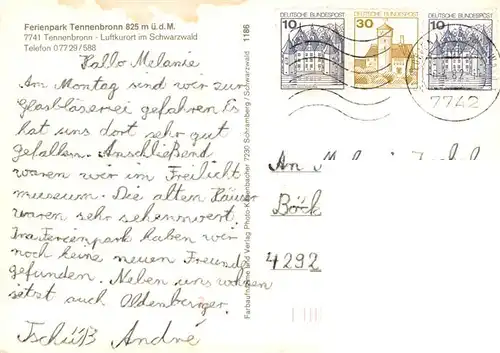 Ferienpark Tennenbronn 825 m ü.d.M.
7741 Tennenbronn · Luftkurort im Schwarzwald
Telefon 07729/588
Hallo Melanie
Am Montag sind wir zur
Glasbläserei gefahren Es
hat uns dort sehr gut
gefallen. Anschließend
waren wir im Freilicht
museum. Die alten Häuser
waren sehr sehenswert.
Im Ferienpark haben wir
noch keine neuen Freunde
gefunden. Neben uns wohnen
jetzt auch Oldenburger.
Tschüß André
1186
Farbaufnahme und Verlag Photo-Kesenbacher 7230 Schramberg/Schwarzwald
DEUTSCHE BUNDESPOST
10
DEUTSCHE BUNDESPOST
30
DEUTSCHE BUNDESPOST
10
7742
An
Böck
4292